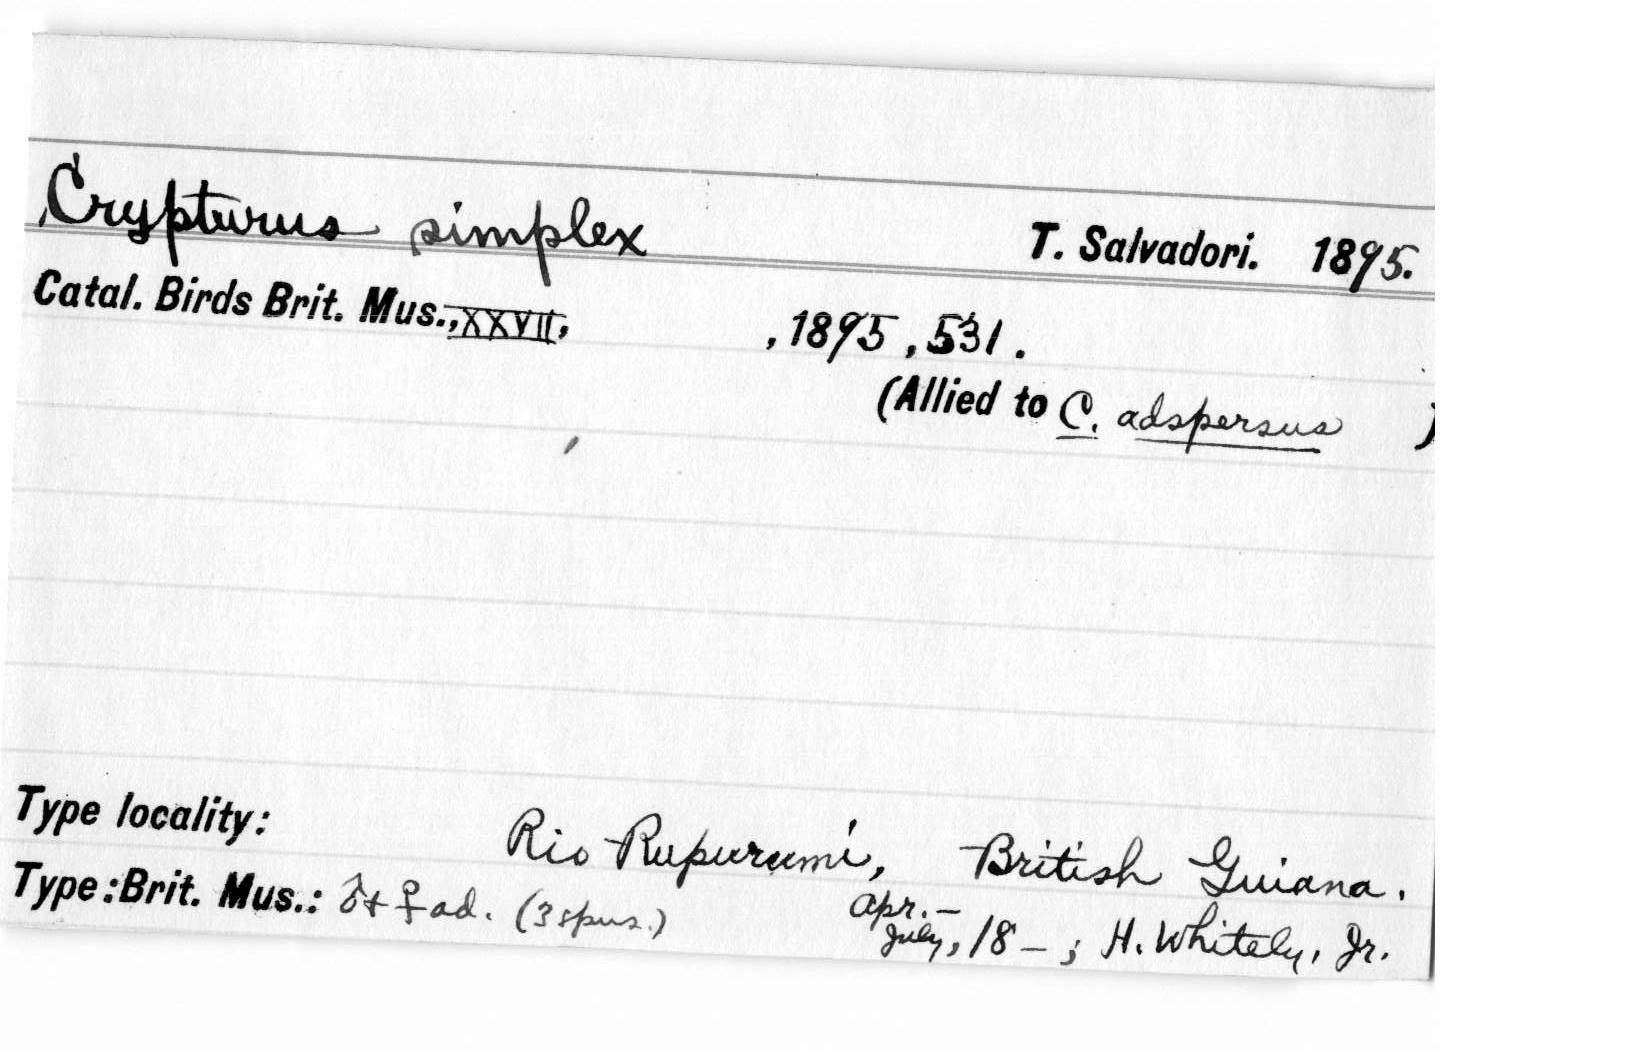 Crypturus simplex T. Salvadori. 1895.
Catal. Birds Brit. Mus., XXVII, , 1895, 531.
(Allied to C. adspersus )
Type locality: Rio Rupurumi, British Guiana.
Type: Brit. Mus.: ♂ + ♀ ad. (3 spms.) Apr.–
July, 18 – ; H. Whitely, Jr.